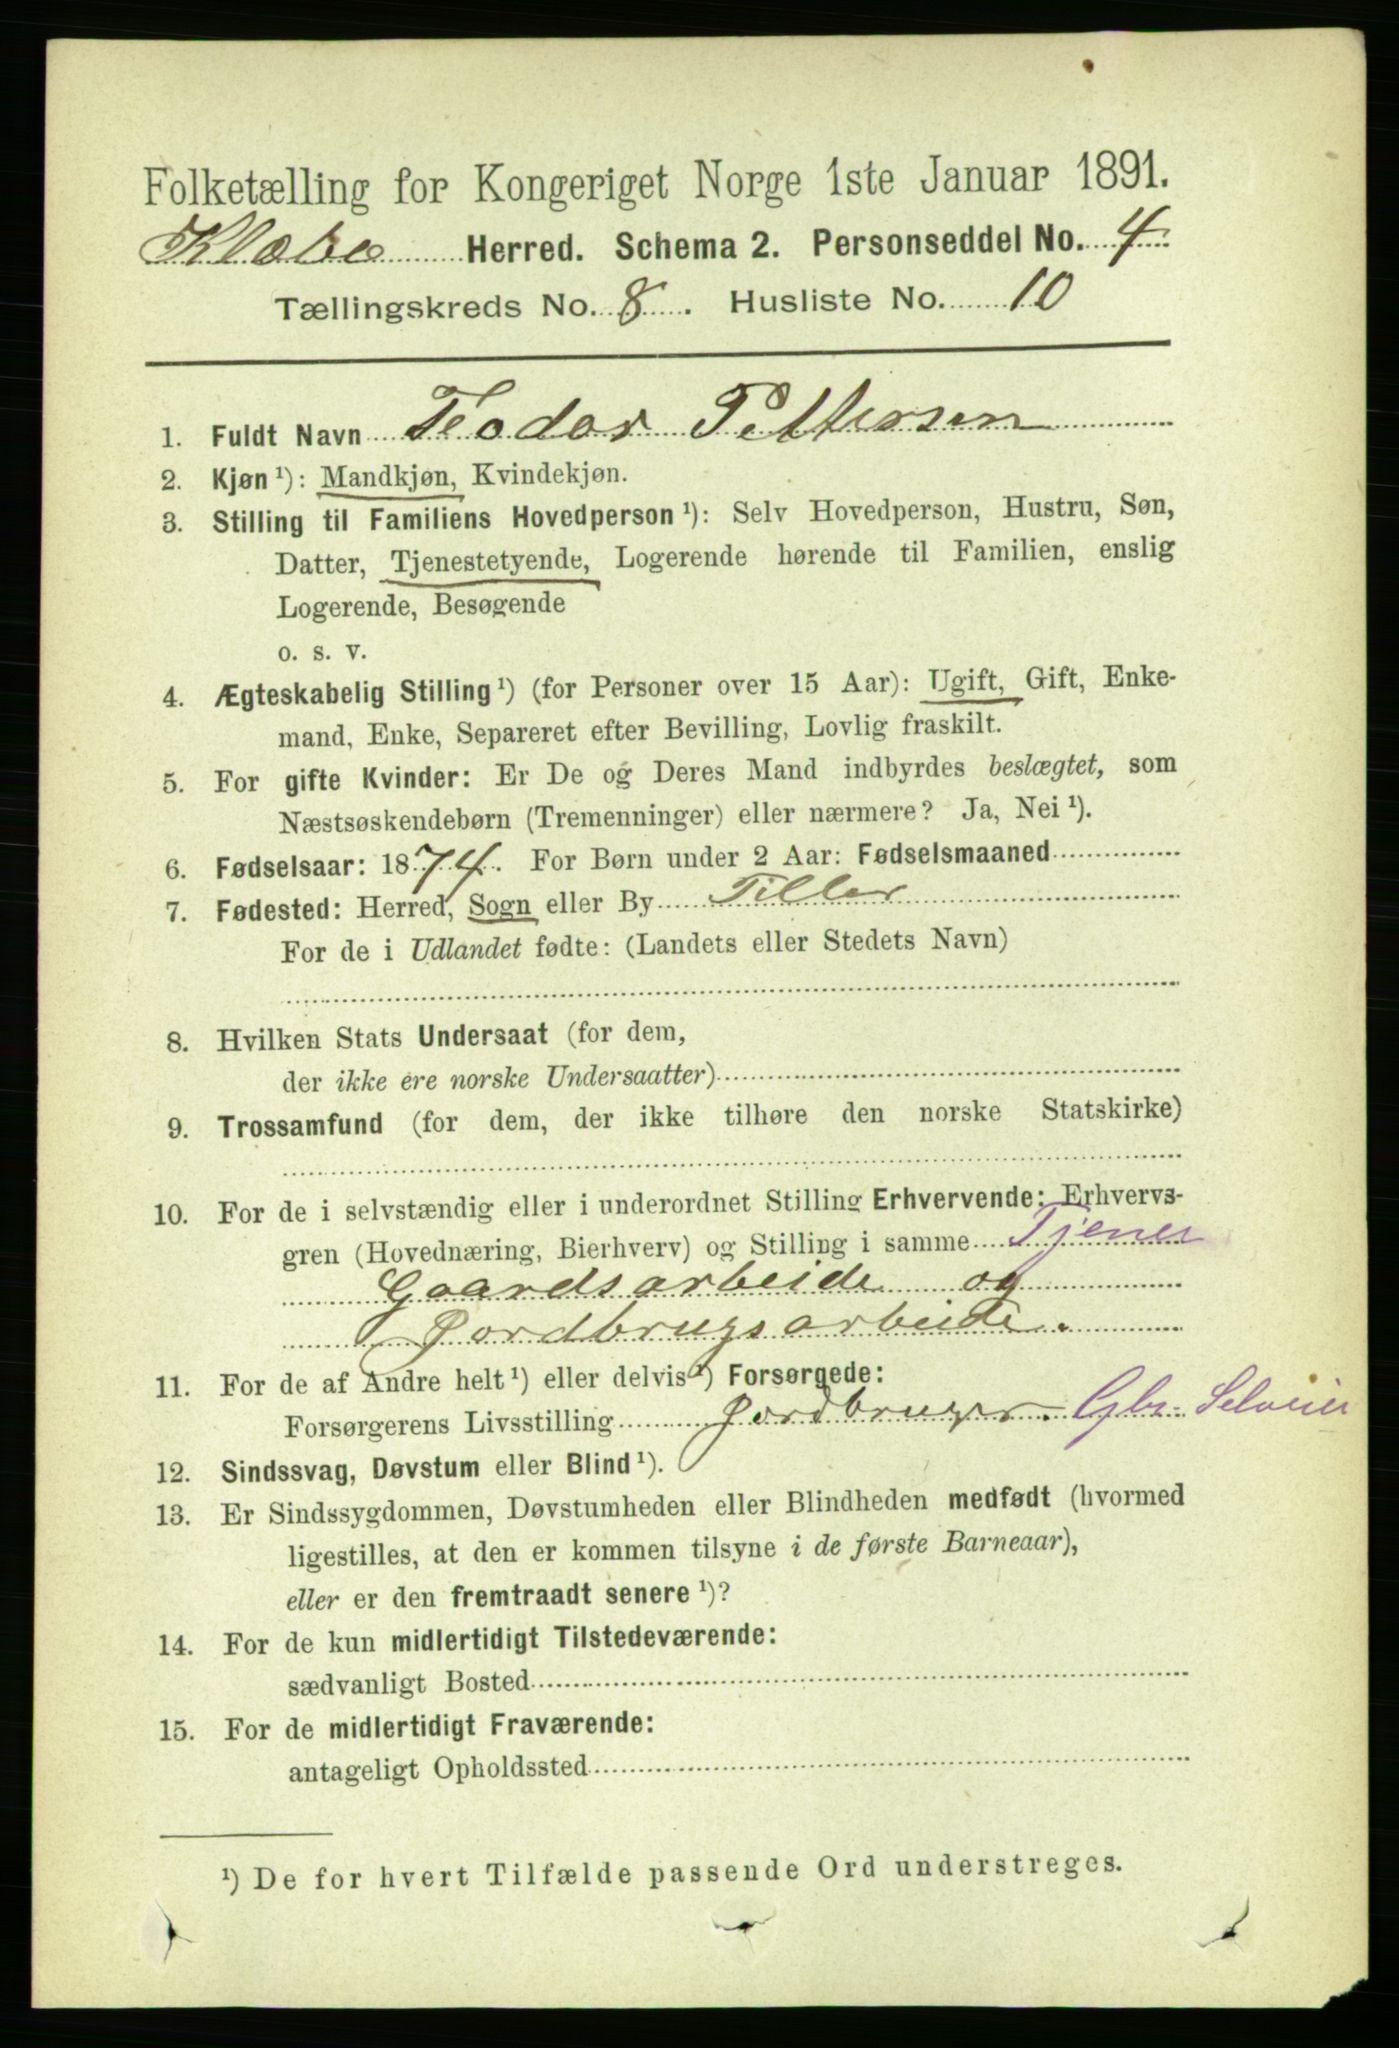 Folketælling for Kongeriget Norge 1ste Januar 1891.
Klæbu Herred. Schema 2. Personseddel No. 4
Tællingskreds No. 8. Husliste No. 10
1. Fuldt Navn Teodor Pettersen
2. Kjøn ¹): Mandkjøn, Kvindekjøn.
3. Stilling til Familiens Hovedperson ¹): Selv Hovedperson, Hustru, Søn,
Datter, Tjenestetyende, Logerende hørende til Familien, enslig
Logerende, Besøgende
o. s. v.
4. Ægteskabelig Stilling ¹) (for Personer over 15 Aar): Ugift, Gift, Enke-
mand, Enke, Separeret efter Bevilling, Lovlig fraskilt.
5. For gifte Kvinder: Er De og Deres Mand indbyrdes beslægtet, som
Næstsøskendebørn (Tremenninger) eller nærmere? Ja, Nei ¹).
6. Fødselsaar: 1874. For Børn under 2 Aar: Fødselsmaaned
7. Fødested: Herred, Sogn eller By Tiller
For de i Udlandet fødte: (Landets eller Stedets Navn)
8. Hvilken Stats Undersaat (for dem,
der ikke ere norske Undersaatter)
9. Trossamfund (for dem, der ikke tilhøre den norske Statskirke)
10. For de i selvstændig eller i underordnet Stilling Erhvervende: Erhvervs-
gren (Hovednæring, Bierhverv) og Stilling i samme Tjener
Gaardsarbeide og
Jordbrugsarbeide.
11. For de af Andre helt ¹) eller delvis ¹) Forsørgede:
Forsørgerens Livsstilling Jordbruger. Gbr. Selveier
12. Sindssvag, Døvstum eller Blind ¹).
13. Er Sindssygdommen, Døvstumheden eller Blindheden medfødt (hvormed
ligestilles, at den er kommen tilsyne i de første Barneaar),
eller er den fremtraadt senere ¹)?
14. For de kun midlertidigt Tilstedeværende:
sædvanligt Bosted
15. For de midlertidigt Fraværende:
antageligt Opholdssted
¹) De for hvert Tilfælde passende Ord understreges.